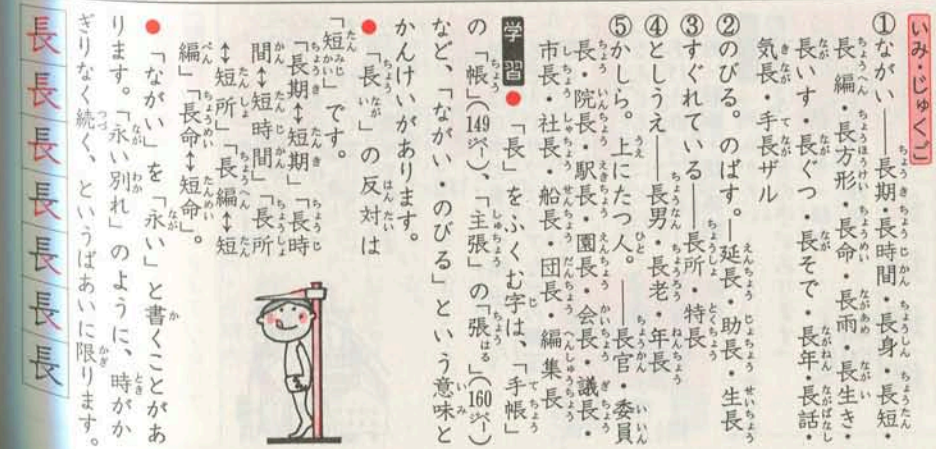 いみ・じゅくご
①ながい――長期・長時間・長身・長短・
長編・長方形・長命・長雨・長生き・
長いす・長ぐつ・長そで・長年・長話・
気長・手長ザル
②のびる。のばす。―延長・助長・生長
③すぐれている――長所・特長
④としうえ――長男・長老・年長
⑤かしら。上にたつ人。――長官・委員
長・院長・駅長・園長・会長・議長・
市長・社長・船長・団長・編集長
学習●「長」をふくむ字は、「手帳」
の「帳」(149ページ)、「主張」の「張」(160ページ)
など、「ながい・のびる」という意味と
かんけいがあります。
●「長い」の反対は
「短い」です。
「長期↔短期」「長時
間↔短時間」「長所
↔短所」「長編↔短
編」「長命↔短命」。
●「ながい」を「永い」と書くことがあ
ります。「永い別れ」のように、時がか
ぎりなく続く、というばあいに限ります。
長長長長長長長